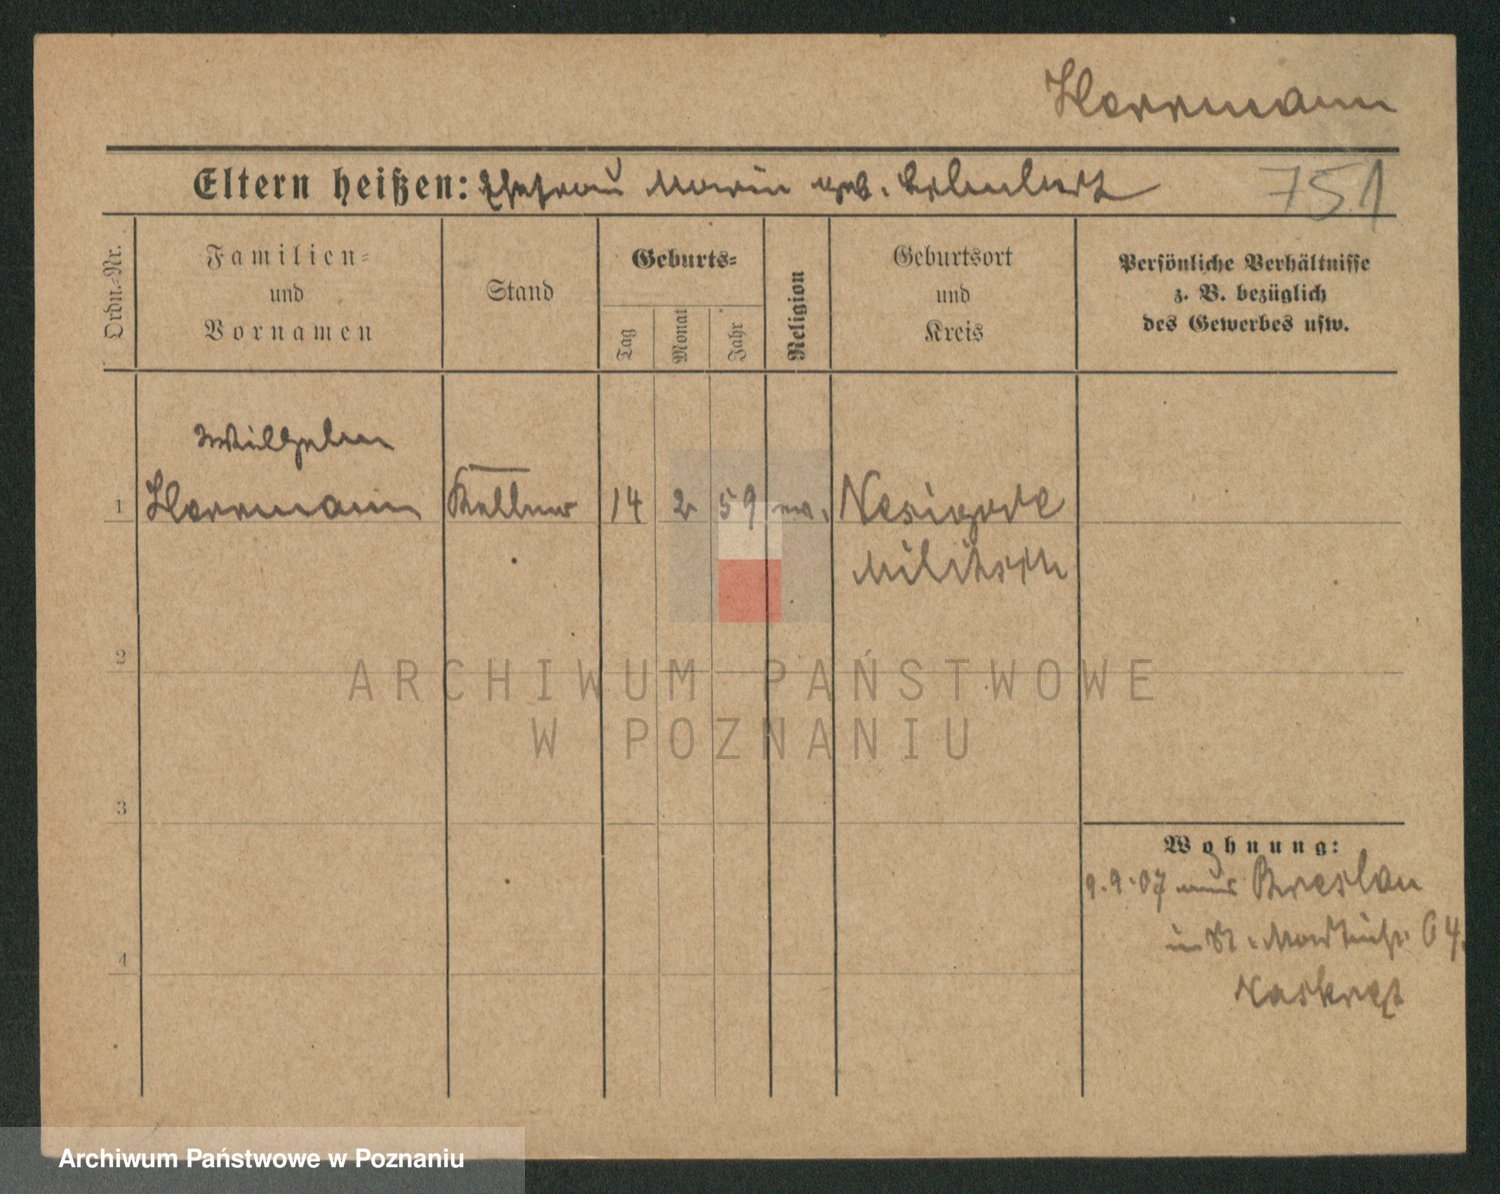 Herrmann
Eltern heißen: Ehefrau Maria geb.
751
Ordn.-Nr.
Familien-
und
Vornamen
Stand
Geburts-
Tag
Monat
Jahr
Religion
Geburtsort
und
Kreis
Persönliche Verhältnisse
z. B. bezüglich
des Gewerbes usw.
Wilhelm
1 Herrmann Kellner 14 2 59 ev. Nesigode
Militsch
2
ARCHIWUM PAŃSTWOWE
W POZNANIU
3
Wohnung:
9.9.07 aus Breslau
in St. Martinstr. 64.
4
Archiwum Państwowe w Poznaniu